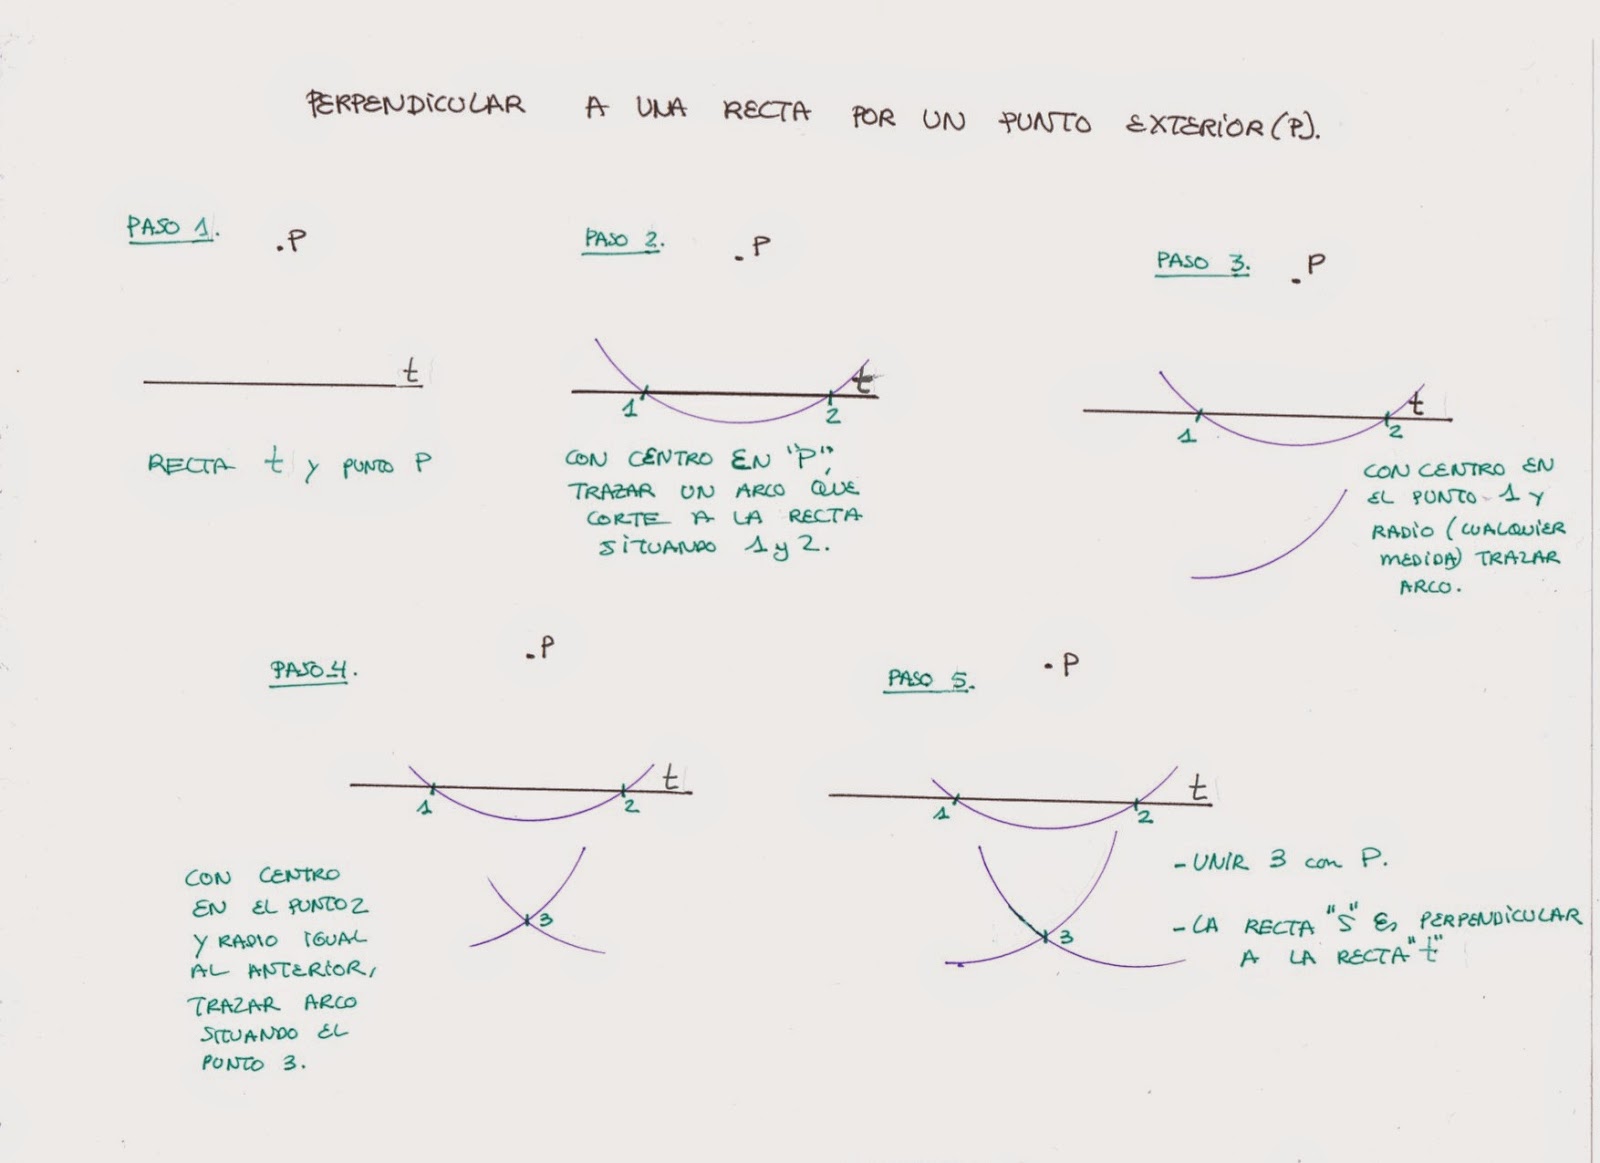 PERPENDICULAR A UNA RECTA POR UN PUNTO EXTERIOR (P).
PASO 1.
.P
t
RECTA t y PUNTO P
PASO 2.
.P
t
1
2
CON CENTRO EN "P",
TRAZAR UN ARCO QUE
CORTE A LA RECTA
SITUANDO 1 y 2.
PASO 3.
.P
t
1
2
CON CENTRO EN
EL PUNTO 1 Y
RADIO (CUALQUIER
MEDIDA) TRAZAR
ARCO.
PASO 4.
.P
t
1
2
3
CON CENTRO
EN EL PUNTO 2
Y RADIO IGUAL
AL ANTERIOR,
TRAZAR ARCO
SITUANDO EL
PUNTO 3.
PASO 5.
.P
t
1
2
3
- UNIR 3 con P.
- LA RECTA "S" ES PERPENDICULAR
A LA RECTA "t"